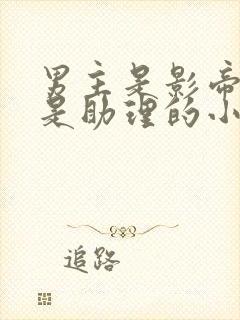 男主是影帝
是助理的小
追路